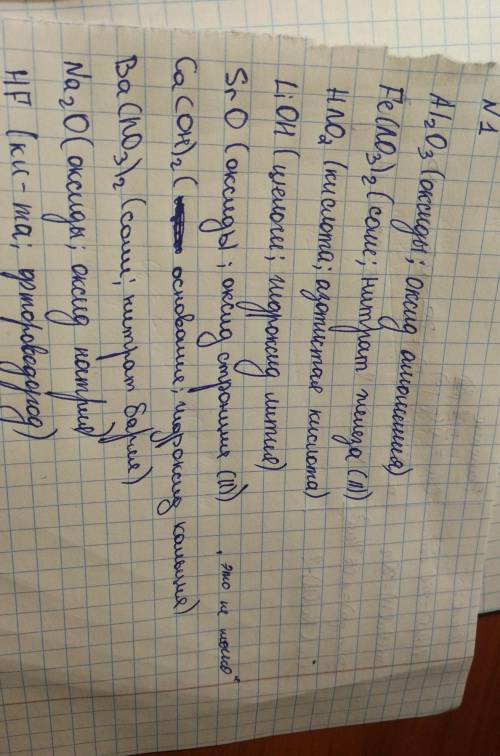 N1
Al₂O₃ (оксиды; оксид алюминия)
Fe(NO₃)₂ (соли; нитрат железа (II))
HNO₂ (кислота; азотистая кислота)
LiOH (щелочи; гидроксид лития)
SrO (оксиды; оксид стронция (II)) "это не точно"
Ca(OH)₂ ( основание; гидроксид кальция)
Ba(NO₃)₂ (соли; нитрат бария)
Na₂O (оксиды; оксид натрия)
HF (кис-та; фтороводород)